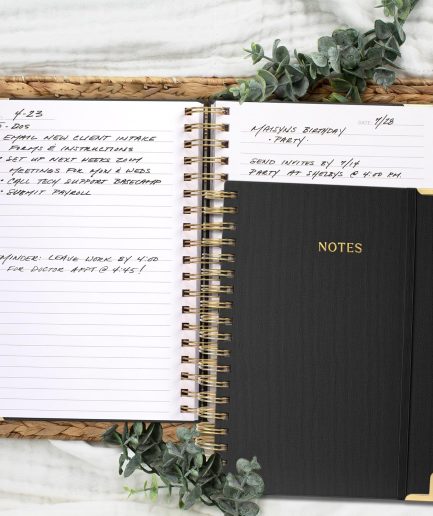 4-23
- DOS
EMAIL NEW CLIENT INTAKE
FORMS & INSTRUCTIONS
• SET UP NEXT WEEKS ZOOM
MEETINGS FOR MON & WEDS
• CALL TECH SUPPORT BASECAMP
• SUBMIT PAYROLL
MINDER: LEAVE WORK BY 4:00
FOR DOCTOR APPT @ 4:45!
DATE: 7/28
MAISYNS BIRTHDAY
• PARTY •
SEND INVITES BY 7/14
PARTY AT SHELBYS @ 4:00 PM
NOTES